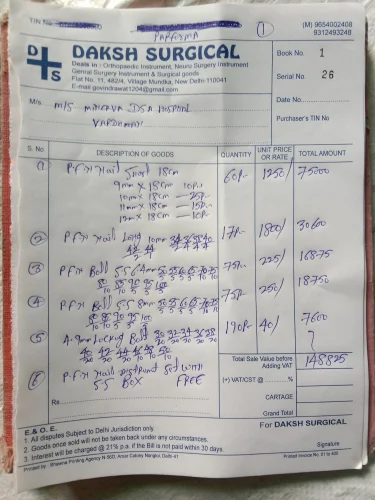 TIN No.
PARFORMA
1
(M) 9654002408
9312493248
DS
DAKSH SURGICAL
Deals in : Orthopaedic Instrument, Neuro Surgery Instrument
Genral Surgery Instrument & Surgical goods
Flat No. 11, 482/4, Village Munirka, New Delhi-110041
E-mail:govindrawat1204@gmail.com
Book No. 1
Serial No. 26
Date No.
Purchaser's TIN No
M/s.
S. No. DESCRIPTION OF GOODS QUANTITY UNIT PRICE OR RATE TOTAL AMOUNT
1 P.F.N Nail Short 18cm 60P. 1250/ 75000
9mm X 18cm 10P.
10mm X 18cm — 25P.
11mm X 18cm — 15P.
12m X 18cm — 10P.
2 P.F.N Nail Long 10mm 34 36 38 40 17P. 1800/ 30600
3 P.F.N Bolt 75P. 225/ 16875
4 P.F.N Bolt 75P. 250/ 18750
5 4.9mm Locking Bolt 30 32 34 36 38 190P. 40/ 7600
6 P.F.N Nail Set with
BOX FREE
Total Sale Value before Adding VAT 148825
(+) VAT/CST @ %
CARTAGE
Grand Total
Rs.
E.& O. E.
1. All disputes Subject to Delhi Jurisdiction only.
2. Goods once sold will not be taken back under any circumstances.
3. Interest will be charged @ 21% p.a. if the Bill is not paid within 30 days.
For DAKSH SURGICAL
Signature